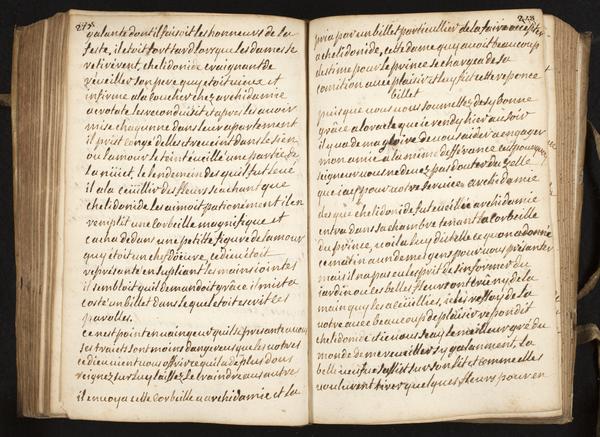 galante dont il faisoit les honneurs de la
feste, il etoit fort tard lorsque les dames se
retirerent, chelidonide craignant de
reveiller son pere qui etoit vieux et
infirme ala coucher chez archidamie
les reconduisit et apres les avoir
mise chaqunne dans leur apartement
il prist congé delles et revint dans le sien
ou lamour le tint eveillé une partie de
la nüict, le lendemin des quil fut levé
il ala ceüillir des fleurs sachant que
chelidonide les aimoit pationément il en
remplit une corbeille magnifique et
cacha dedans une petitte figure de lamour
quy étoit un chef dœuvre, ce dieu étoit
representé en supliant les mains jointes
il sembloit quil demandoit grace il mit a
costé un billet dans lequel etoit escrit les
parolles.
ce nest point en vainqueur quil se presente a vous
ses traits sont moins dangereux que les votres
ce dieu vient vous offrir ce quil a de plus doux
regnez sur luy laissez le craindre aux autres
il envoya cette corbeille a archidamie et la
pria par un billet particullier de la faire accepter
a chelidonide, cette dame quy avoit beaucoup
destime pour le prince se chargea de sa
comition avec plaisir et luy fit cette reponce
billet
puis que vous vous soumettez de sy bonne
grace a loracle que je rendy hier au soir
il y va de ma gloire de vous aider a engager
mon amie a la
seigneur vous ne devez pas douter du zelle
que jay pour votre service archidamie
des que chelidonide fut eveillée archidamie
entra dans sa chambre tenant la corbeille
du prince, voila luy dit elle ce quon a donné
ce matin a un de mes gens pour vous presenter
mais il na pas eu lesprit de sinformer du
jardin ou les belles fleurs ont creu ny de la
main quy les a ceüillies, je les reçoy de la
votre avec beaucoup de plaisir repondit
chelidonide et je vous sçay le meilleur gré du
monde de me reveiller sy galanment, la
belle sur son lit et comme elles
voulurent tirer quelques fleurs pour en